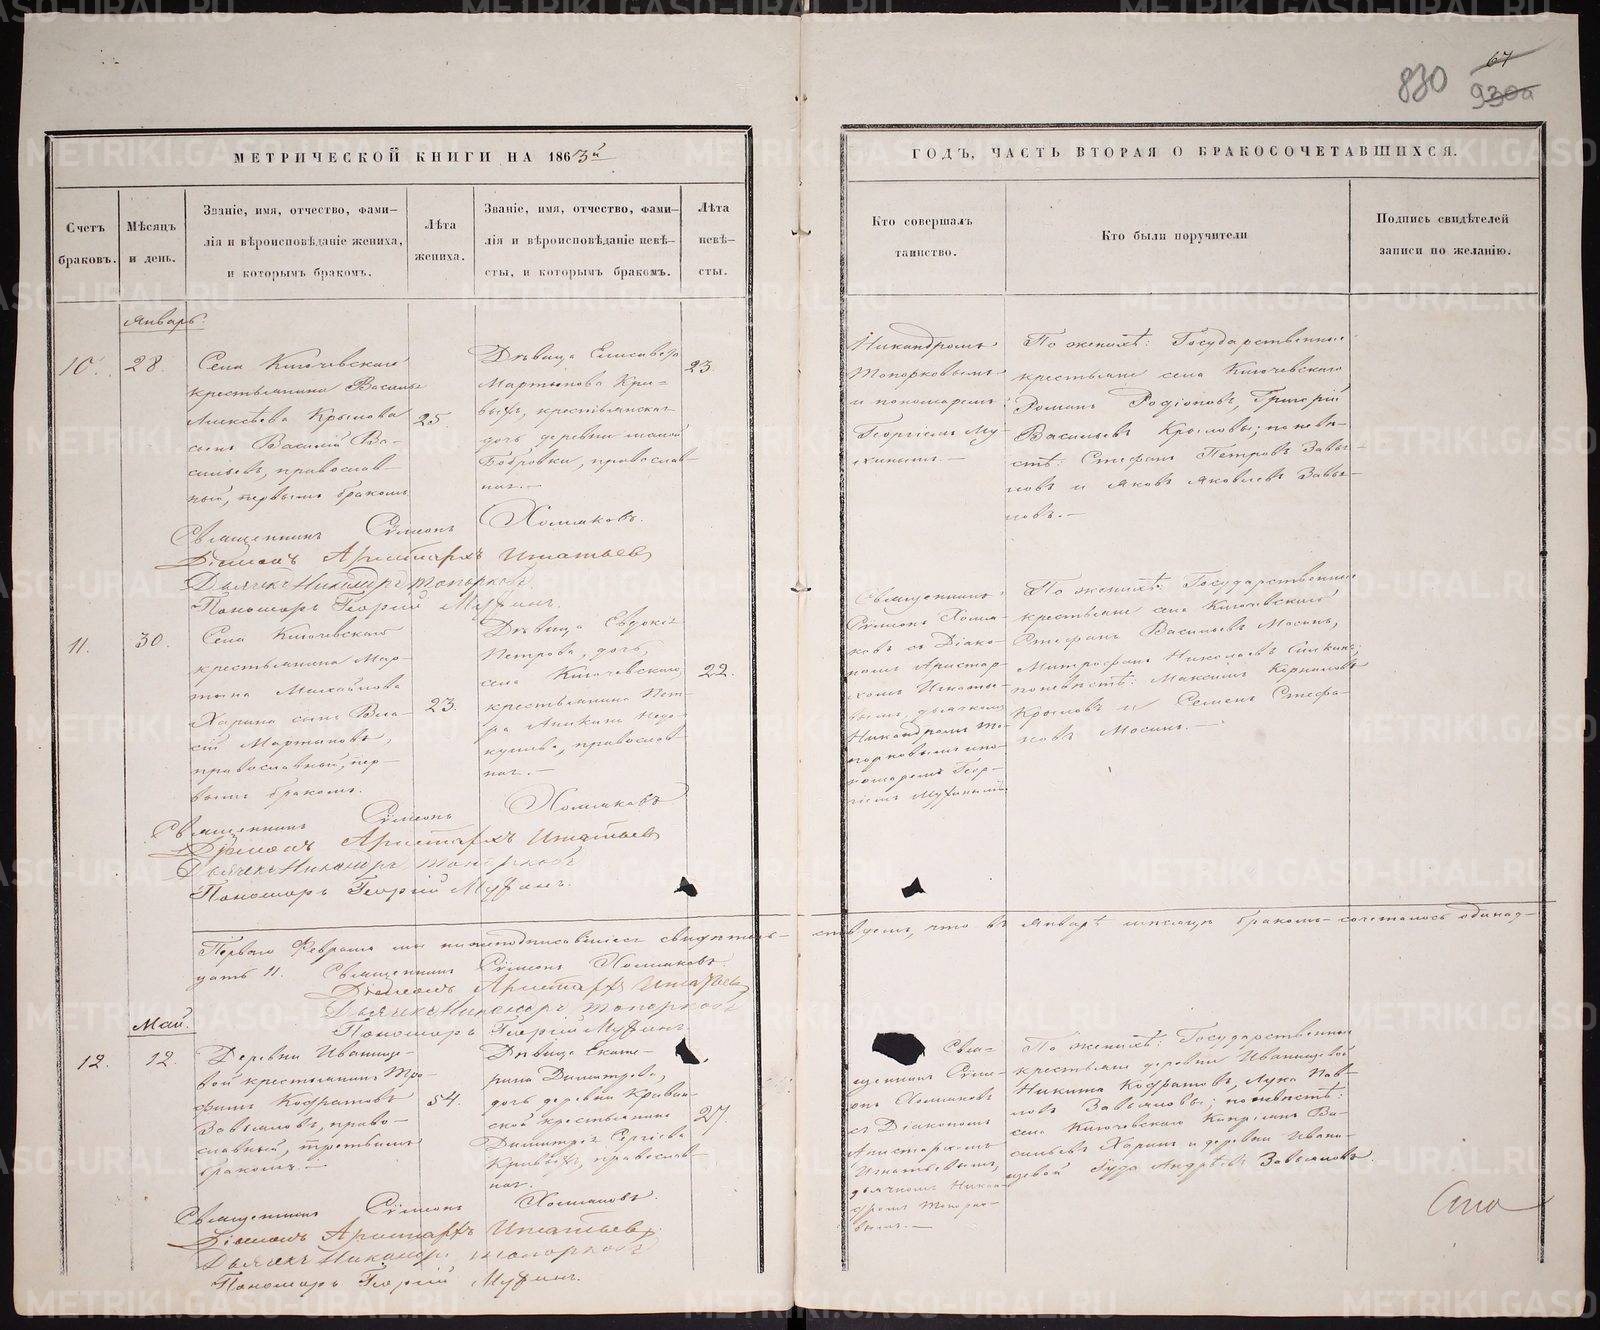 830
67
930а
МЕТРИЧЕСКОЙ КНИГИ НА 1863й
ГОДЪ, ЧАСТЬ ВТОРАЯ О БРАКОСОЧЕТАВШИХСЯ.
Счетъ
браковъ.
Мѣсяцъ
и день.
Званіе, имя, отчество, фами-
лія и вѣроисповѣданіе жениха,
и которымъ бракомъ.
Лѣта
жениха.
Званіе, имя, отчество, фами-
лія и вѣроисповѣданіе невѣ-
сты, и которымъ бракомъ.
Лѣта
невѣ-
сты.
Кто совершалъ
таинство.
Кто были поручители
Подпись свидѣтелей
записи по желанію.
Январь.
10.
28.
Села Ключевскаго
крестьянина Василья
Алексѣева Крылова
сынъ Василій Ва-
сильевъ, православ-
ный, первымъ бракомъ
25.
Дѣвица Елисавета
Мартынова Кри-
выхъ, крестьянская
дочь деревни малой
Бобровки, православ-
ная.-
23.
Никандромъ
Топорковымъ
и пономаремъ
Георгіемъ Му-
хинымъ.-
По женихѣ: Государственные
крестьяне села Ключевскаго
Романъ Родіоновъ, Григорій
Васильевъ Крыловы; по невѣ-
стѣ: Стефанъ Петровъ Завья-
ловъ и Яковъ Яковлевъ Завья-
ловъ.-
Священникъ Сѵмеонъ Холмаковъ.
Діаконъ Аристархъ Игнатьевъ
Дьячекъ Никандръ Топорковъ
Пономарь Георгій Мухинъ.
11.
30.
Села Ключевскаго
крестьянина Мар-
тына Михайлова
Харина сынъ Влa-
сій Мартыновъ,
православный, пер-
вымъ бракомъ.
23.
Дѣвица Евдокія
Петрова, дочь
села Ключевскаго
крестьянина Пет-
ра Аникина Недо-
православ-
ная.-
22.
Священникъ
Сѵмеонъ Холма-
ковъ съ Діако-
номъ Аристар-
хомъ Игнатье-
вымъ, дьячкомъ
Никандромъ То-
порковымъ и по-
номаремъ Геор-
гіемъ Мухинымъ
По женихѣ: Государственные
крестьяне села Ключевскаго
Стефанъ Васильевъ Мосинъ,
Митрофанъ Николаевъ
по невѣстѣ: Максимъ Корниловъ
Крыловъ и Семенъ Стефа-
новъ Мосинъ.-
Священникъ Сѵмеонъ Холмаковъ
Діаконъ Аристархъ Игнатьевъ
Дьячекъ Никандръ Топорковъ
Пономарь Георгій Мухинъ.
Перваго Февраля мы нижеподписавшіеся свидѣтель-
ствуемъ, что въ Январѣ мѣсяцѣ бракомъ сочеталось одинад-
цать 11. Священникъ Сѵмеонъ Холмаковъ.
Діаконъ Аристархъ Игнатьевъ
Дьячекъ Никандръ Топорковъ
Пономарь Георгій Мухинъ.
Май.
12.
12.
Деревни Иванище-
вой крестьянинъ Тро-
фимъ Кодратовъ
Завьяловъ, право-
славный, третьимъ
бракомъ.-
54.
Дѣвица Екате-
рина Димитрева,
дочь деревни
крестьянина
Димитрія Сергіева
Кривыхъ, православ-
ная.
27.
Свя-
щенникъ Сѵме-
онъ Холмаковъ
съ Діакономъ
Аристархомъ
Игнатьевымъ,
дьячкомъ Никан-
дромъ Топорко-
вымъ.-
По женихѣ: Государственные
крестьяне деревни Иванищевой
Никита Кодратовъ, Лука Пав-
ловъ Завьяловы; по невѣстѣ:
села Ключевскаго Кипріянъ Ва-
сильевъ Харинъ и деревни Ивани-
щевой Гудa Андрѣевъ Завьяловъ.
Священникъ Сѵмеонъ Холмаковъ.
Діаконъ Аристархъ Игнатьевъ
Дьячекъ Никандръ Топорковъ
Пономарь Георгій Мухинъ.
METRIKI.GASO-URAL.RU